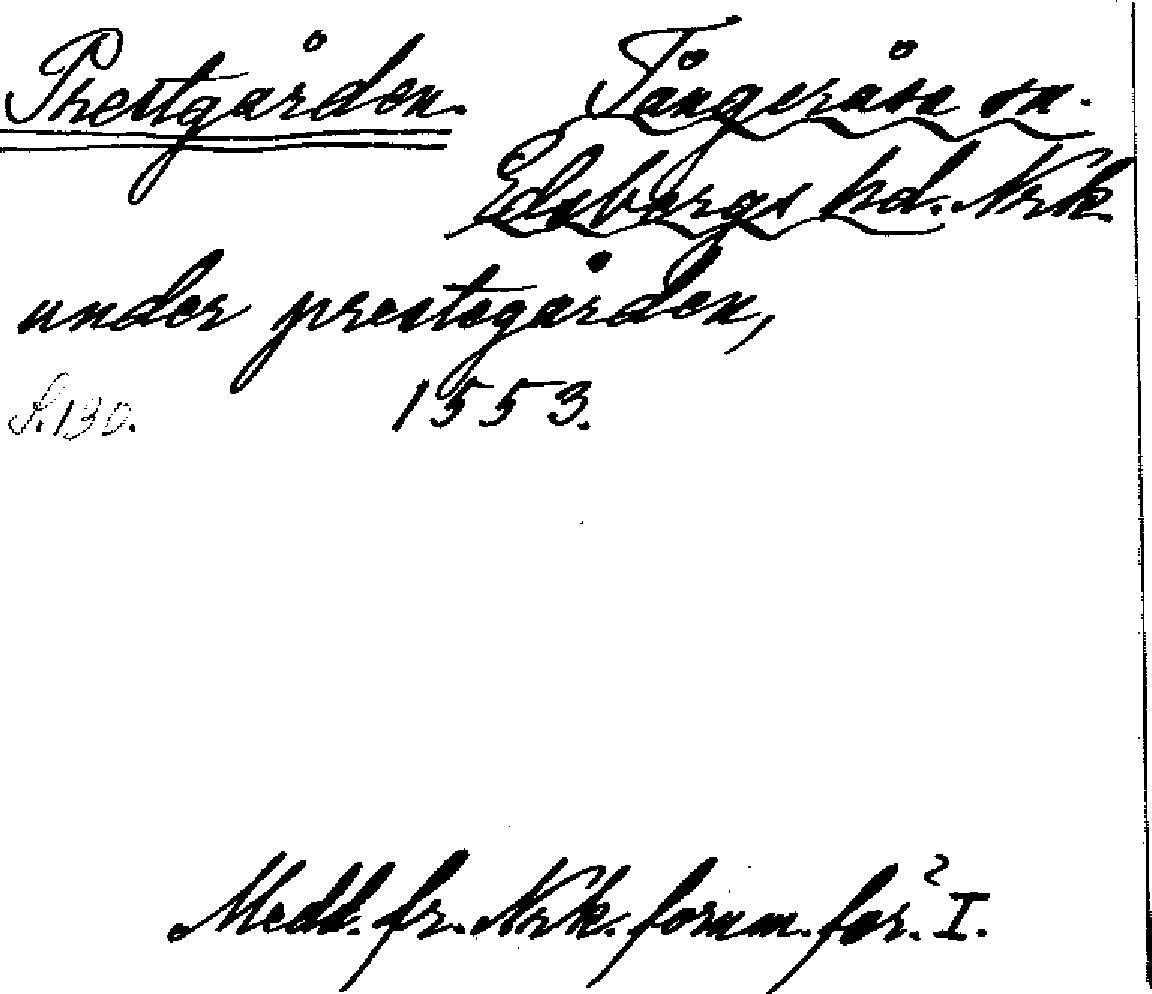 Prestgården. Tångeråsa sn.
Edsbergs hd. Nrk
under prestegården,
S. 130. 1553.
Medd. fr. Nrk. fornm. för. I.